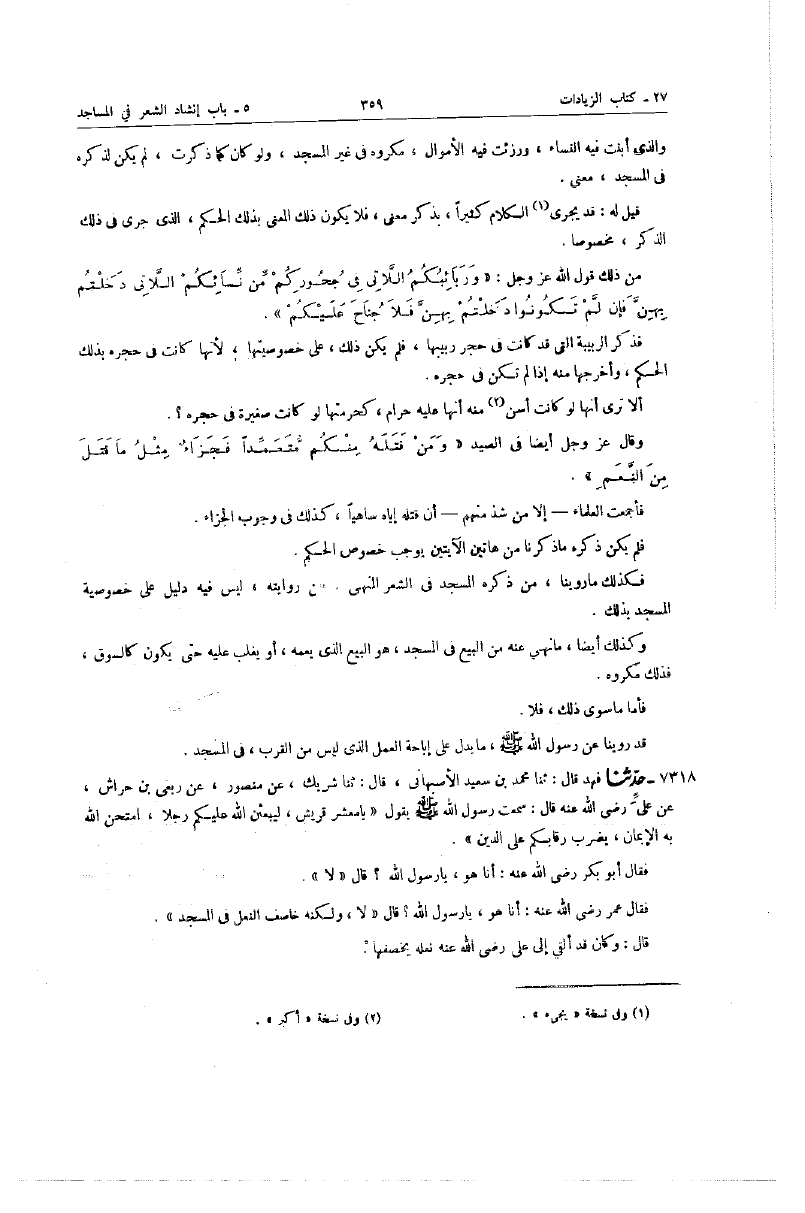 ٢٧ - كتاب الزيادات ٣٥٩ ٥ - باب إنشاد الشعر في المساجد
والذى أبنت فيه النساء ، ورزئت فيه الأموال ، مكروه فى غير المسجد ، ولو كان كما ذكرت ، لم يكن لذكره
فى المسجد ، معنى .
قيل له : قد يجرى(١) الكلام كثيراً ، بذكر معنى ، فلا يكون ذلك المعنى بذلك الحكم ، الذى جرى فى ذلك
الذكر ، مخصوصا .
من ذلك قول الله عز وجل : « وَرَبَائِبُكُمُ اللَّاتِى فِى حُجُورِكُمْ مِّن نِّسَائِكُمُ اللَّاتِى دَخَلْتُم
بِهِنَّ فَإِن لَّمْ تَكُونُوا دَخَلْتُمْ بِهِنَّ فَلَا جُنَاحَ عَلَيْكُمْ » .
فذكر الربيبة التى قد كانت فى حجر ربيبها ، فلم يكن ذلك ، على خصوصيتها ، لأنها كانت فى حجره بذلك
الحكم ، وأخرجها منه إذا لم تكن فى حجره .
ألا ترى أنها لو كانت أسن(٢) منه أنها عليه حرام ، كحرمتها لو كانت صغيرة فى حجره ؟ .
وقال عز وجل أيضا فى الصيد « وَمَنْ قَتَلَهُ مِنْكُم مُّتَعَمِّداً فَجَزَاءٌ مِثْلُ مَا قَتَلَ
مِنَ النَّعَمِ » .
فأجمعت العلماء — إلا من شذ منهم — أن قتله إياه ساهياً ، كذلك فى وجوب الجزاء .
فلم يكن ذكره ماذكرنا من هاتين الآيتين يوجب خصوص الحكم .
فكذلك ماروينا ، من ذكره المسجد فى الشعر المنهى عن روايته ، ليس فيه دليل على خصوصية
المسجد بذلك .
وكذلك أيضا ، مانهي عنه من البيع فى المسجد ، هو البيع الذى يعمه ، أو يغلب عليه حتى يكون كالسوق ،
فذلك مكروه .
فأما ماسوى ذلك ، فلا .
قد روينا عن رسول الله ﷺ ، مايدل على إباحة العمل الذى ليس من القرب ، فى المسجد .
٧٣١٨ - حدثنا فهد قال : ثنا محمد بن سعيد الأصبهانى ، قال : ثنا شريك ، عن منصور ، عن ربعى بن حراش ،
عن علىّ رضى الله عنه قال : سمعت رسول الله ﷺ يقول « يامعشر قريش ، ليبعثن الله عليكم رجلا ، امتحن الله
به الإيمان ، يضرب رقابكم على الدين » .
فقال أبو بكر رضى الله عنه : أنا هو ، يارسول الله ؟ قال « لا » .
فقال عمر رضى الله عنه : أنا هو ، يارسول الله ؟ قال « لا ، ولكنه خاصف النعل فى المسجد » .
قال : وكان قد ألقى إلى على رضى الله عنه نعله يخصفها .
(١) وفى نسخة « يجىء » . (٢) وفى نسخة « أكبر » .